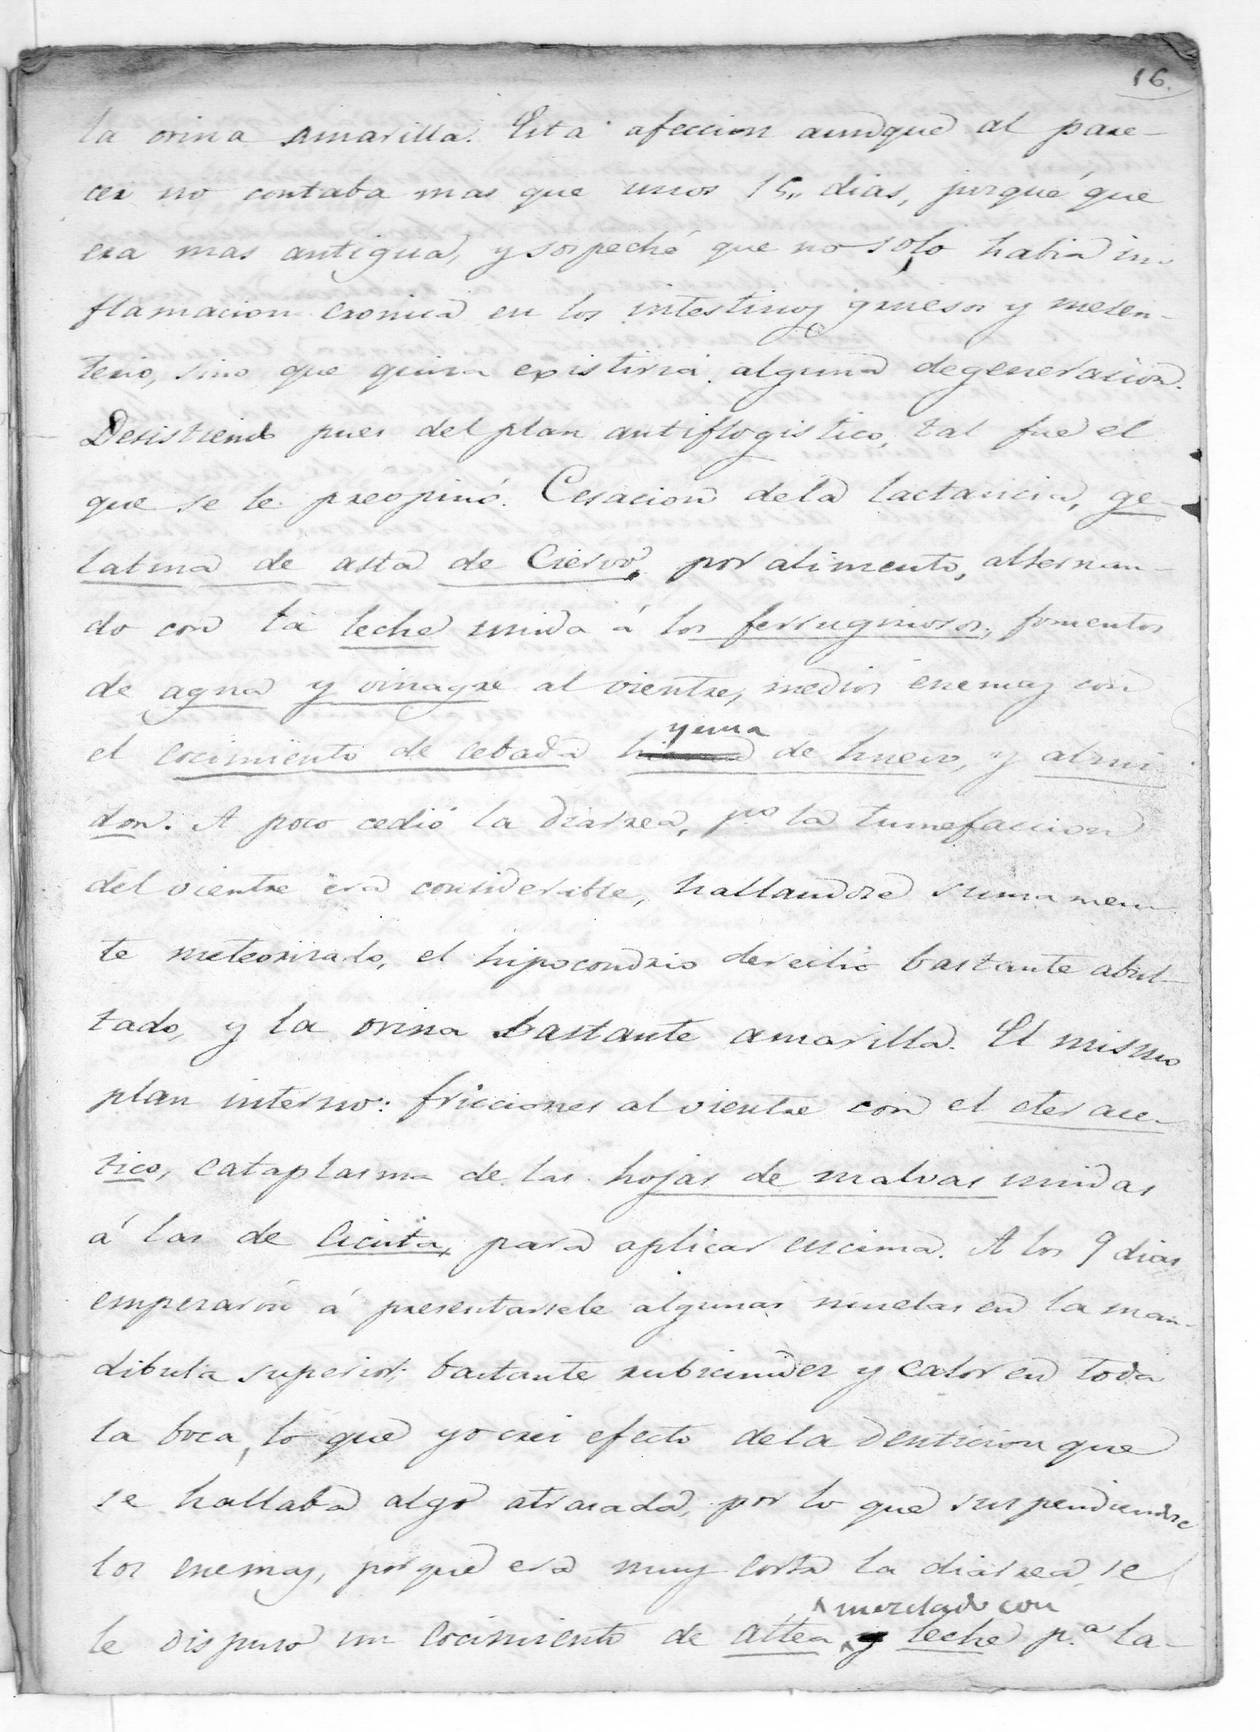 16.
la orina amarilla. Esta afeccion aunque al pare-
cer no contaba mas que unos 15,, dias, jusgué que
era mas antigua, y sospeché que no solo habia in-
flamacion cronica en los intestinos gruesos y mesen-
terio, sino que quisa existiria alguna degeneracion.
Desistiendo pues del plan antiflogistico, tal fue el
que se le preopinó. Cesacion dela lactancia, ge-
latina de asta de Ciervo, por alimento, alternan-
do con la leche unida á los ferruginosos, fomentos
de agua y vinagre al vientre, medios enemas con
yema
el cocimiento de cebada de huevo, y almi
don. A poco cedió la diarrea, po la tumefaccion
del vientre era considerable, hallandose sumamen-
te meteorisado, el hipocondrio derecho bastante abul-
tado, y la orina bastante amarilla. El mismo
plan interno: fricciones al vientre con el eter ace-
tico, cataplasma de las hojas de malvas unidas
á las de Cicuta, para aplicar encima. A los 9 dias
empesarón á presentarsele algunas muelas en la man-
dibula superior; bastante rubicundez y calor en toda
la boca, lo que yo crei efecto dela denticion que
se hallaba algo atrasada, por lo que suspendiendose
los enemas, porque era muy corta la diarrea, se
mezclado con
le dispuso un cocimiento de altea y leche p.a la-